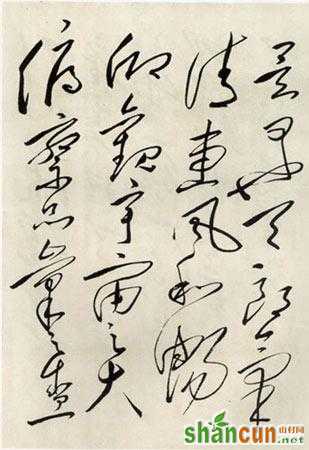 是日也天朗氣
清惠風和暢
仰觀宇宙之大
俯察品類之盛
shancun
山村网
.net